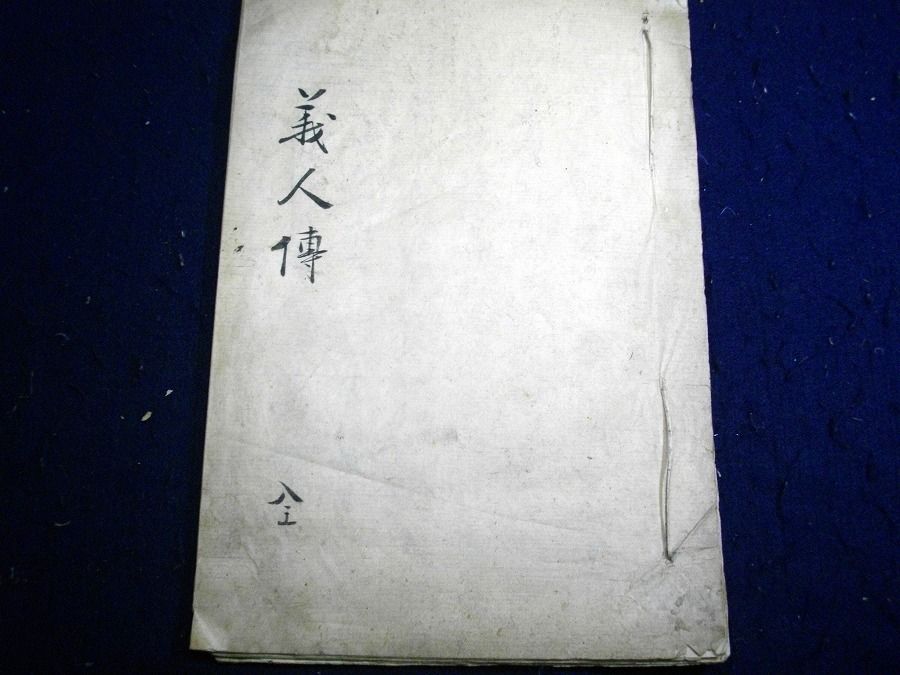 義人傳
全